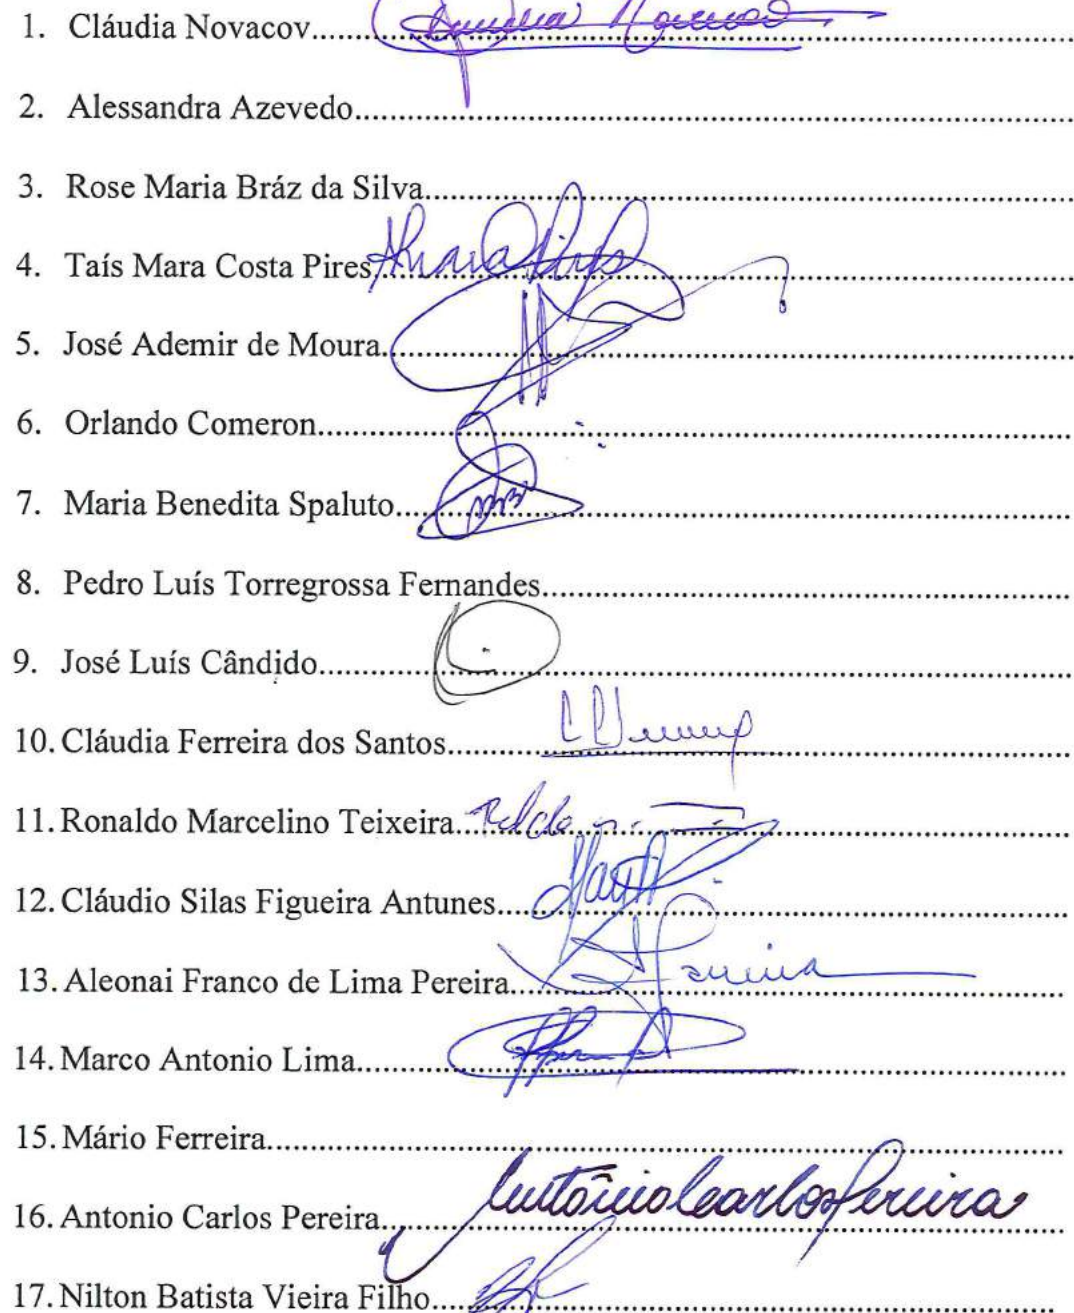 1. Cláudia Novacov...... Claudia Novacov
2. Alessandra Azevedo......
3. Rose Maria Bráz da Silva......
4. Taís Mara Costa Pires
5. José Ademir de Moura......
6. Orlando Comeron......
7. Maria Benedita Spaluto......
8. Pedro Luís Torregrossa Fernandes......
9. José Luís Cândido......
10. Cláudia Ferreira dos Santos......
11. Ronaldo Marcelino Teixeira......
12. Cláudio Silas Figueira Antunes......
13. Aleonai Franco de Lima Pereira......
14. Marco Antonio Lima......
15. Mário Ferreira......
16. Antonio Carlos Pereira...... Antônio Carlos Pereira
17. Nilton Batista Vieira Filho......